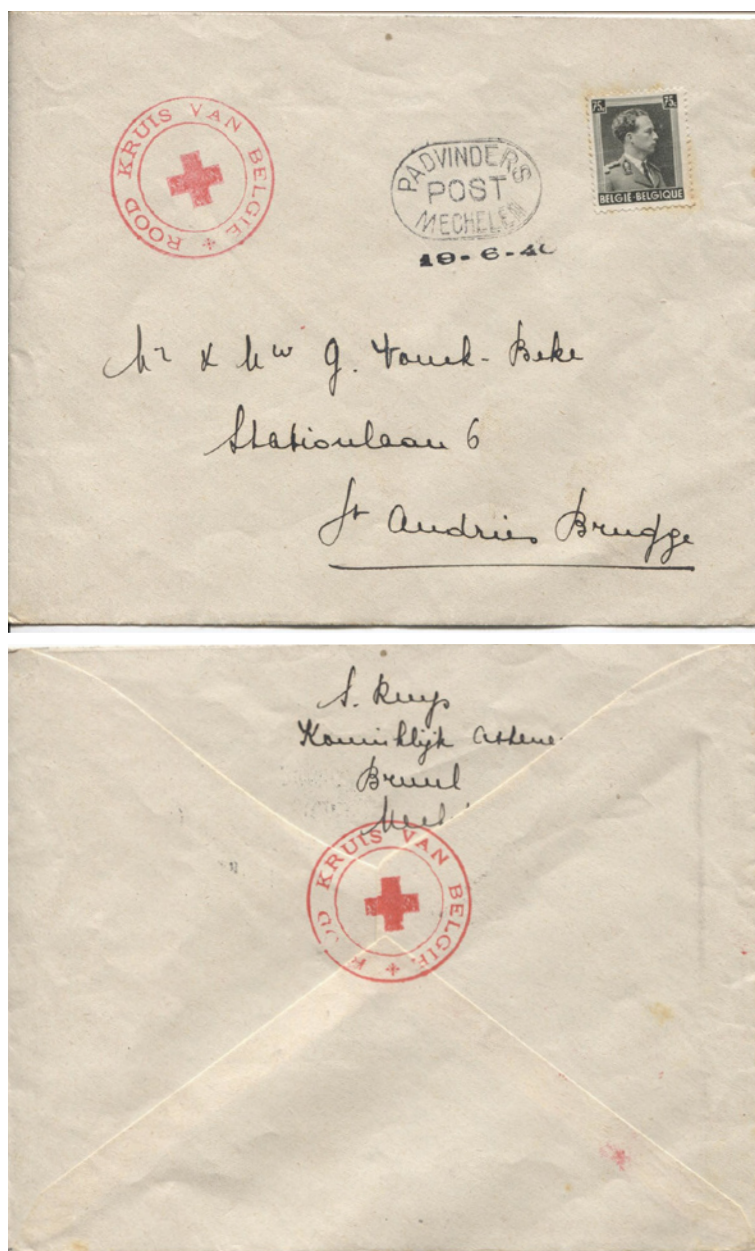 ROOD KRUIS VAN BELGIE
PADVINDERS
POST
MECHELEN
19-6-40
75c 75c
BELGIE-BELGIQUE
Mr & Mw G. Vonck-Beke
Stationlaan 6
St Andries Brugge
S. Ruys
Koninklijk Athene
Bruul
Mech
KRUIS VAN BELGIE